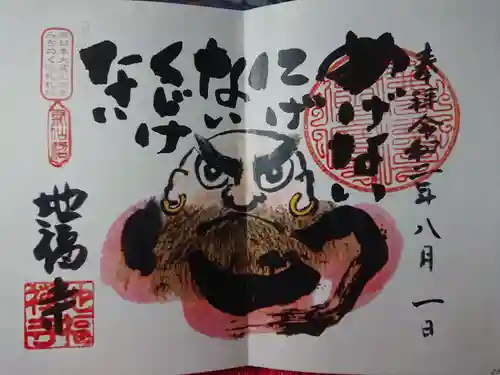 奉拝 令和二年八月一日
めげない
にげ
ない
くじけ
ない
地福寺